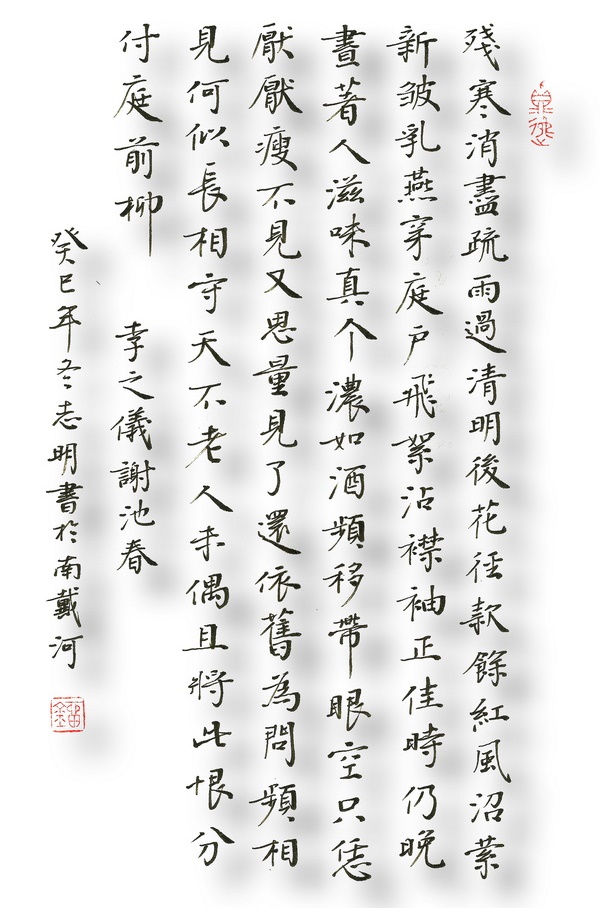 殘寒消盡疏雨過清明後花径款餘紅風沼萦
新皱乳燕穿庭户飛絮沾襟袖正佳時仍晚
晝著人滋味真个濃如酒頻移帶眼空只恁
厭厭瘦不見又思量見了還依舊為問頻相
見何似長相守天不老人未偶且將此恨分
付庭前柳 李之儀謝池春
癸巳年冬志明書於南戴河